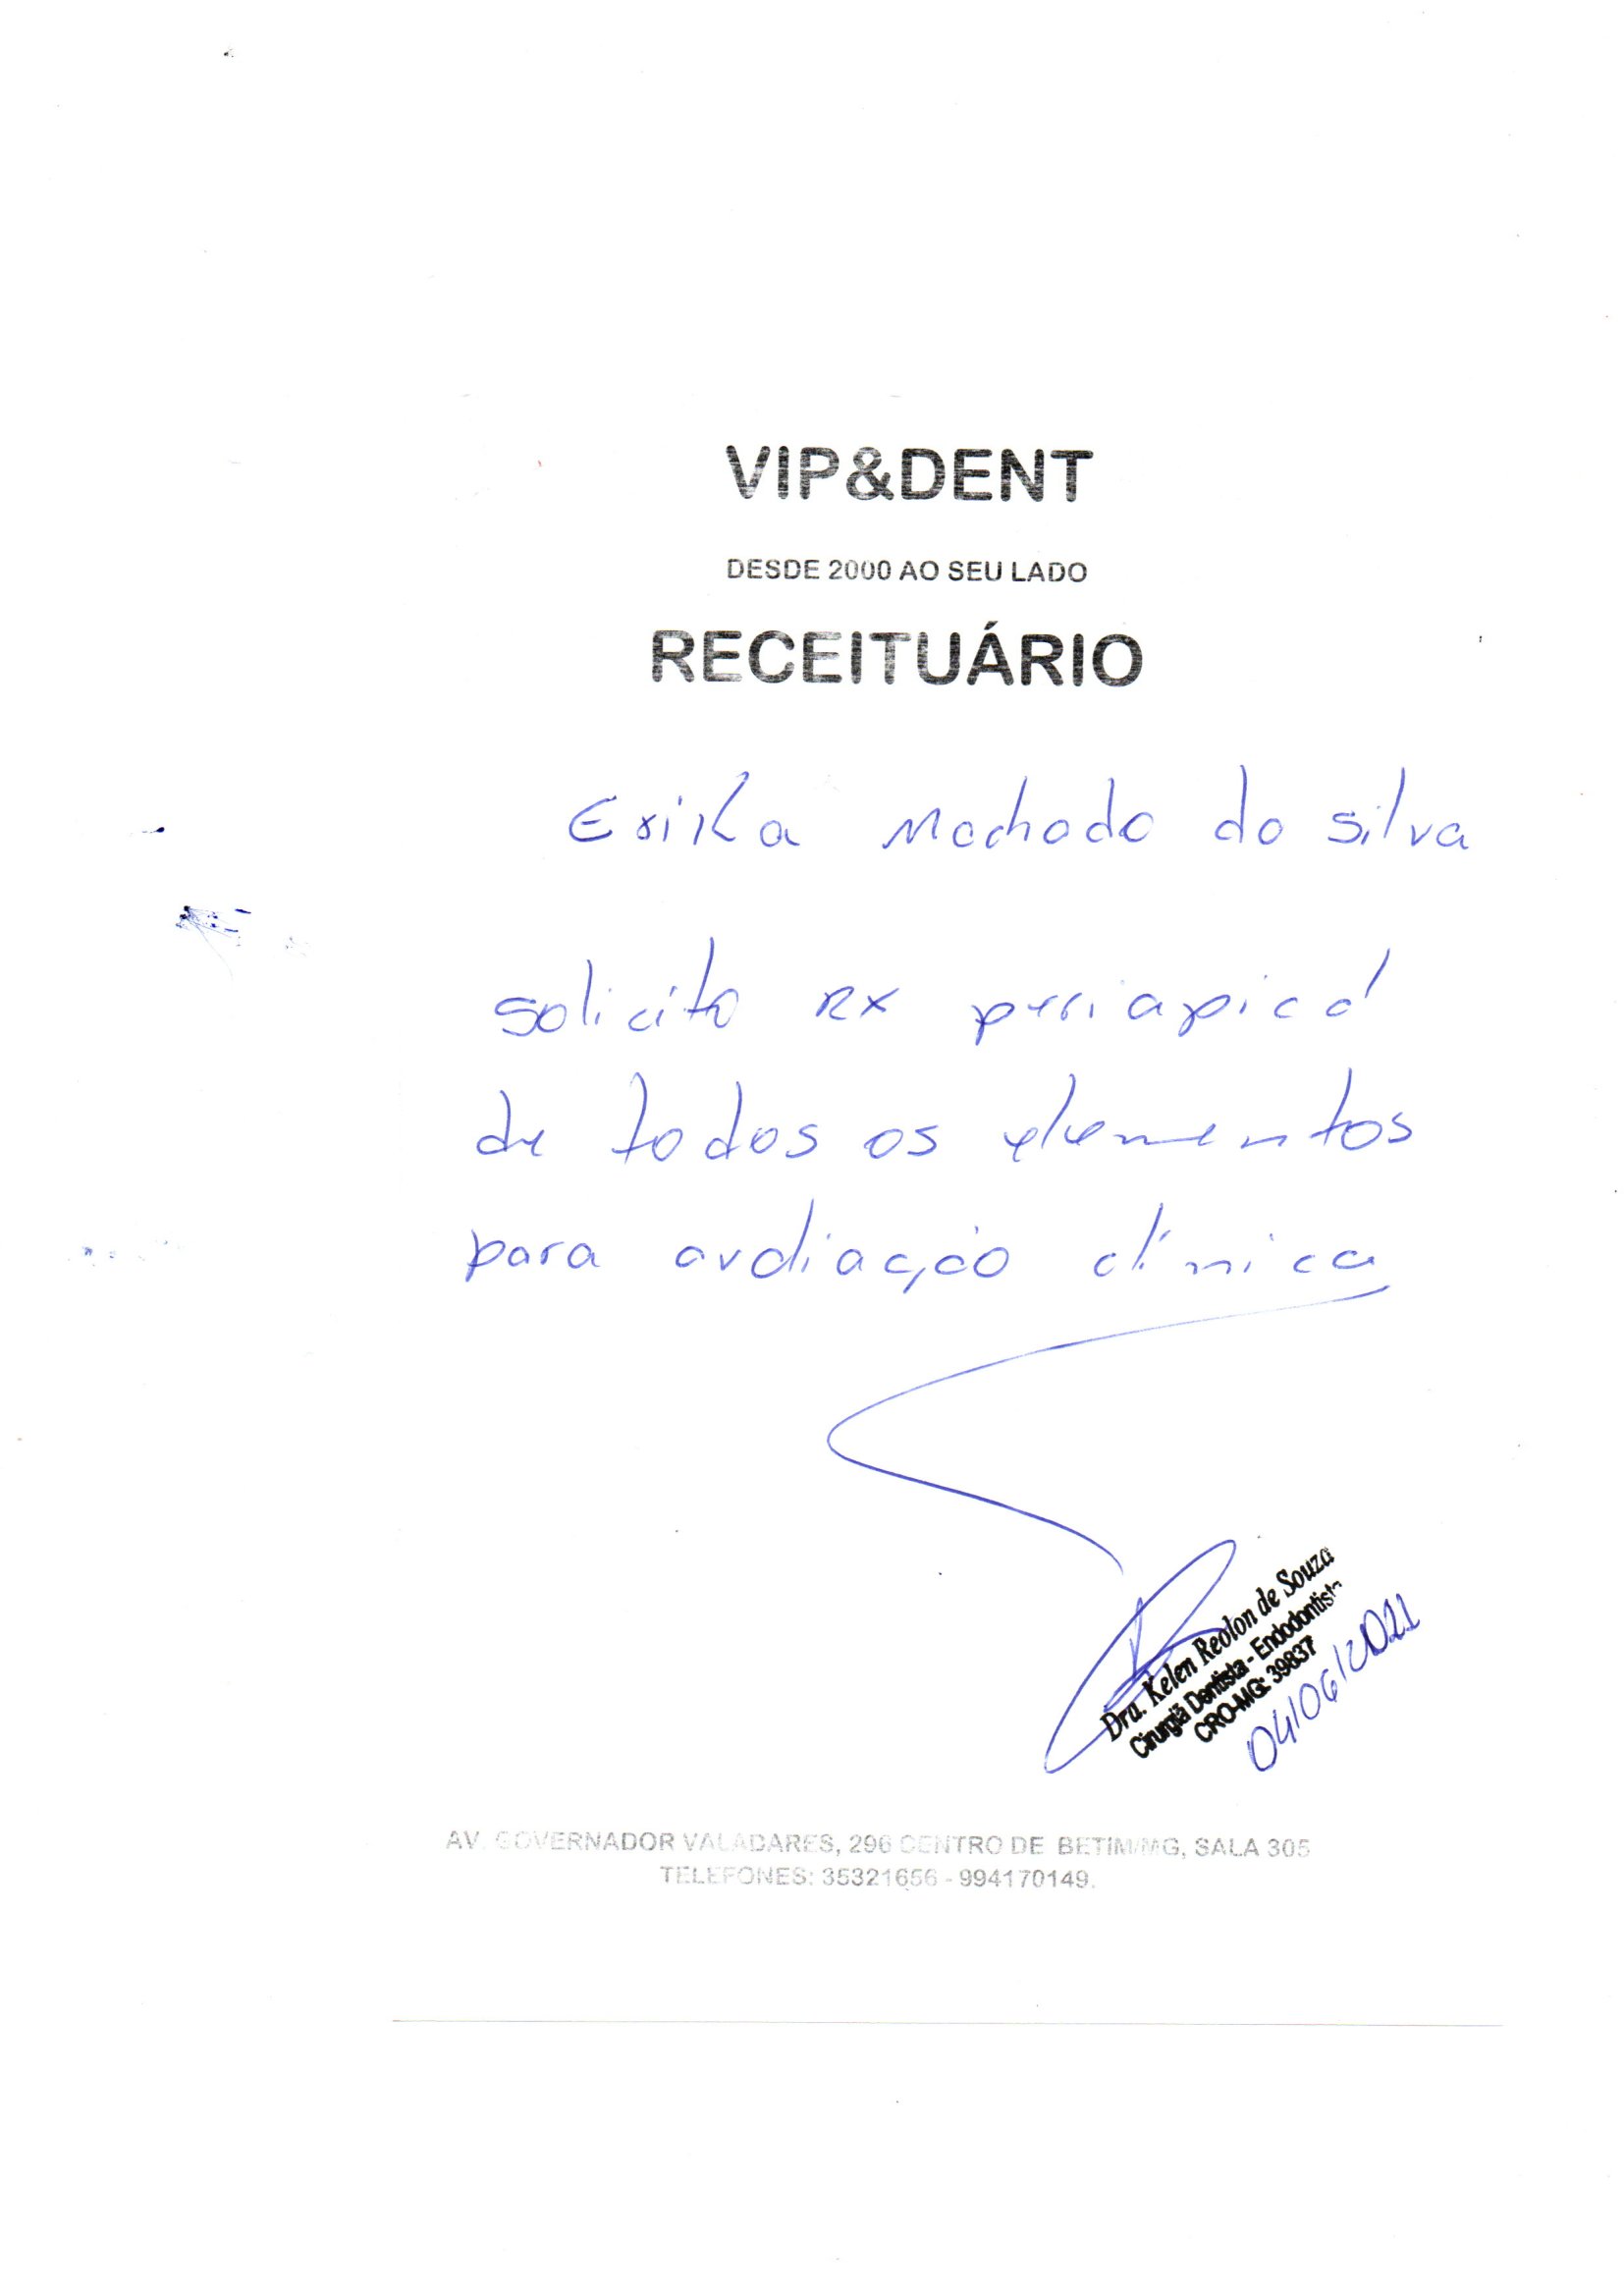 VIP&DENT
DESDE 2000 AO SEU LADO
RECEITUÁRIO
Erika Machado da Silva
solicito RX periapical
de todos os elementos
para avaliação clínica
Dra. Kelen Reolon de Souza
Cirurgiã Dentista - Endodontista
CRO-MG: 39837
04/06/2021
AV. GOVERNADOR VALADARES, 296 CENTRO DE BETIM/MG, SALA 305
TELEFONES: 35321656 - 994170149.